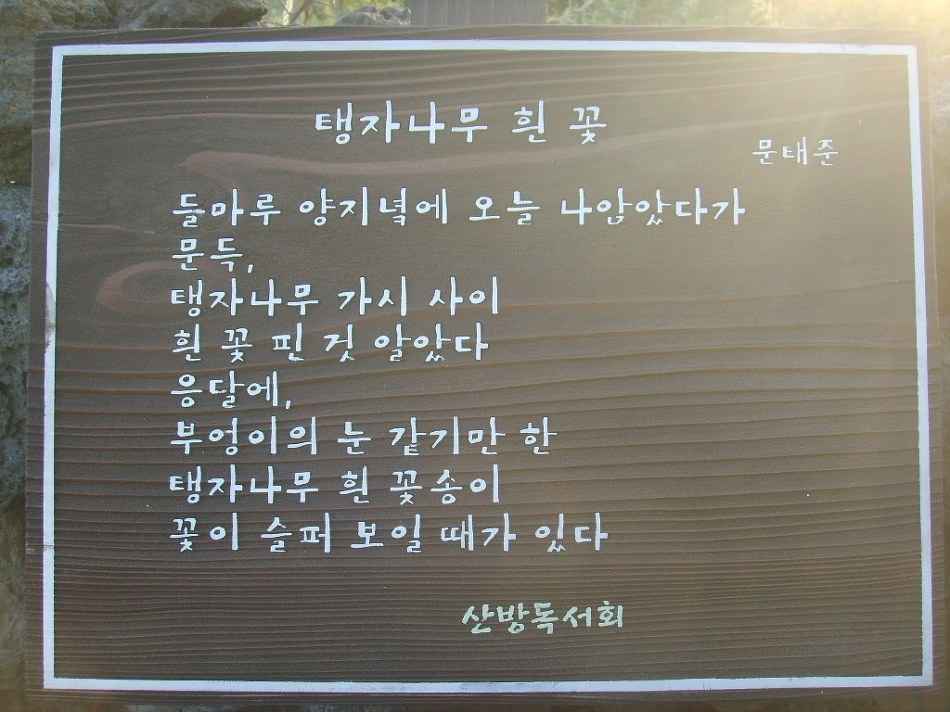 탱자나무 흰 꽃
문태준
들마루 양지녘에 오늘 나앉았다가
문득,
탱자나무 가시 사이
흰 꽃 핀 것 알았다
응달에,
부엉이의 눈 같기만 한
탱자나무 흰 꽃송이
꽃이 슬퍼 보일 때가 있다
산방독서회